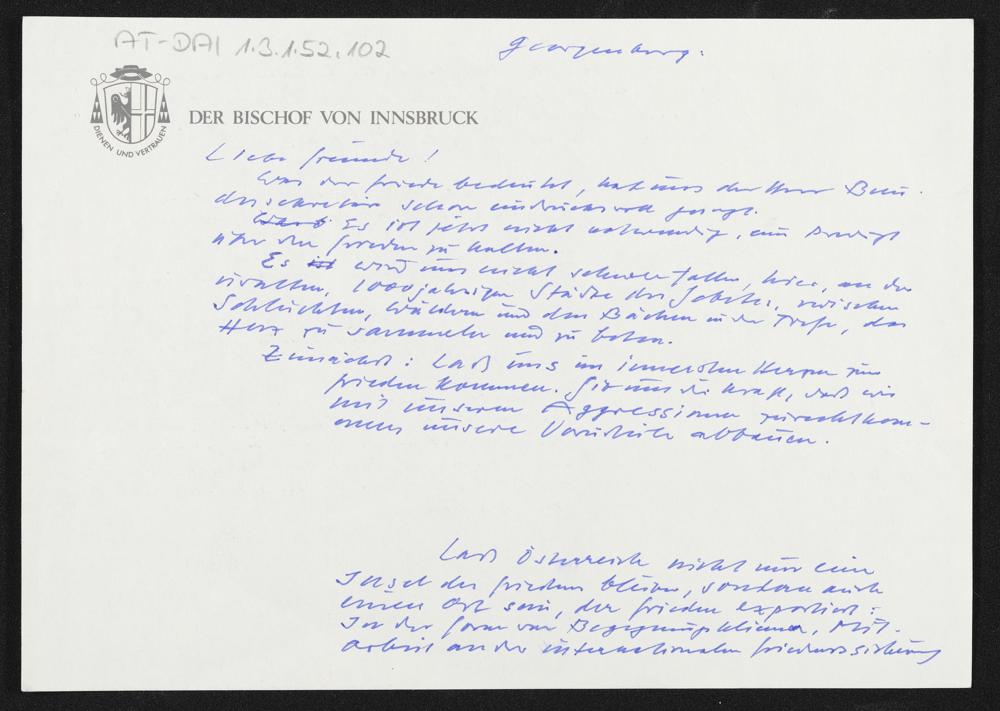 AT-DAI 1.3.1.52.102
Georgenberg:
DIENEN UND VERTRAUEN
DER BISCHOF VON INNSBRUCK
Liebe Freunde!
Was der Friede bedeutet, hat uns der Herr Bun-
dessekretär schon eindrucksvoll gesagt.
Es ist jetzt nicht notwendig, eine Predigt
über den Frieden zu halten.
Es ist wird uns nicht schwer fallen, hier, an der
uralten, 1000jährigen Stätte des Gebetes, zwischen
Schluchten, Wäldern und den Bächen in der Tiefe, das
Herz zu sammeln und zu beten.
Zunächst: Laß uns im innersten Herzen zum
Frieden kommen. Gib uns die Kraft, daß wir
mit unseren Aggressionen zurechtkom-
men unsere Vorurteile abbauen.
Laß Österreich nicht nur eine
Insel des Friedens bleiben, sondern auch
einen Ort sein, der Frieden exportiert:
In der Form von Begegnungsklima, Mit-
arbeit an der internationalen Friedenssicherung